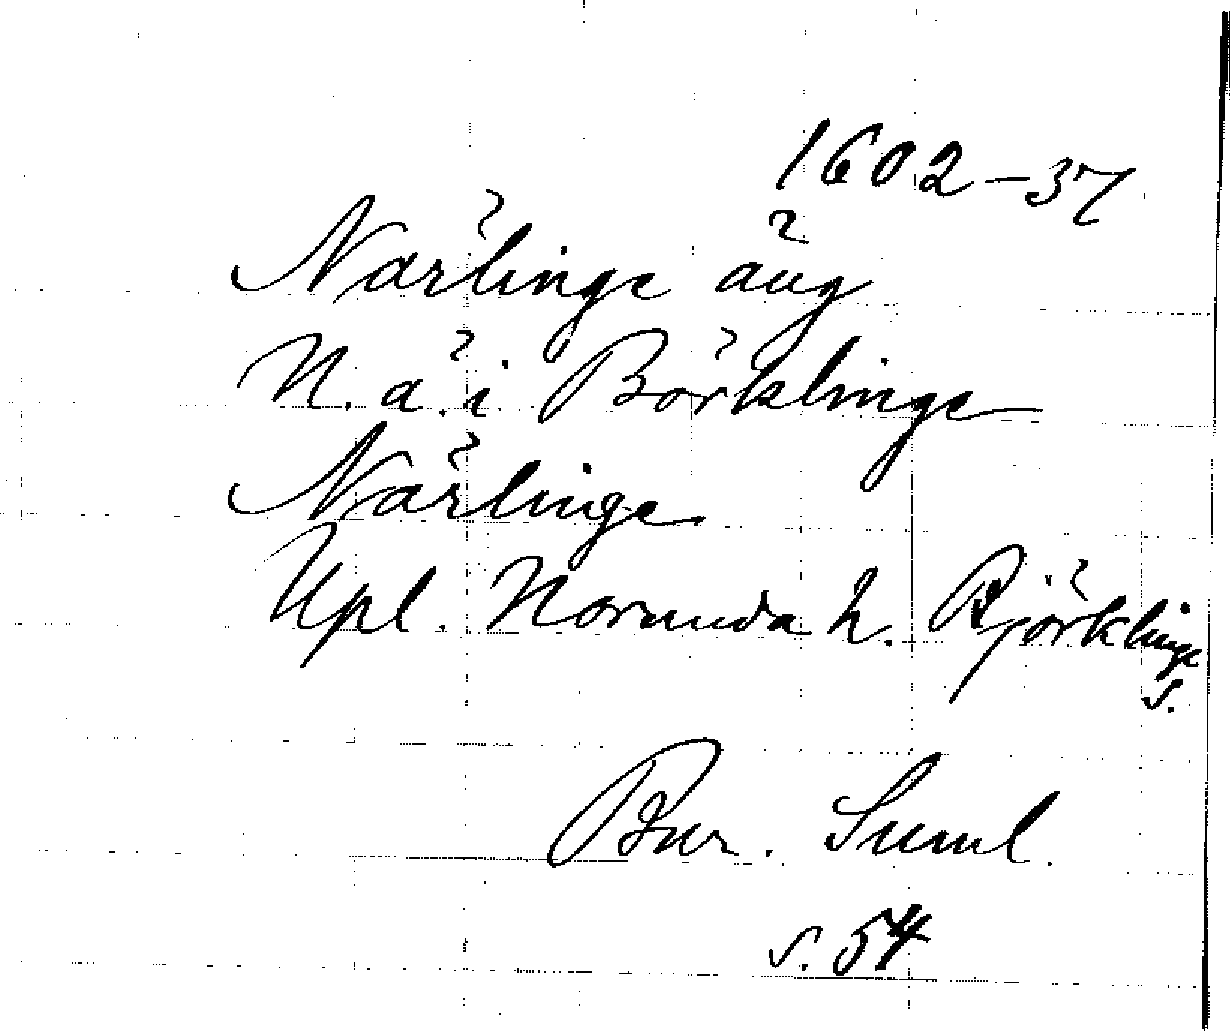 1602-37
Närlinge äng
N. ä. i Börklinge
Närlinge
Upl. Norunda h. Björklinge
s.
Bur. Suml.
s. 54